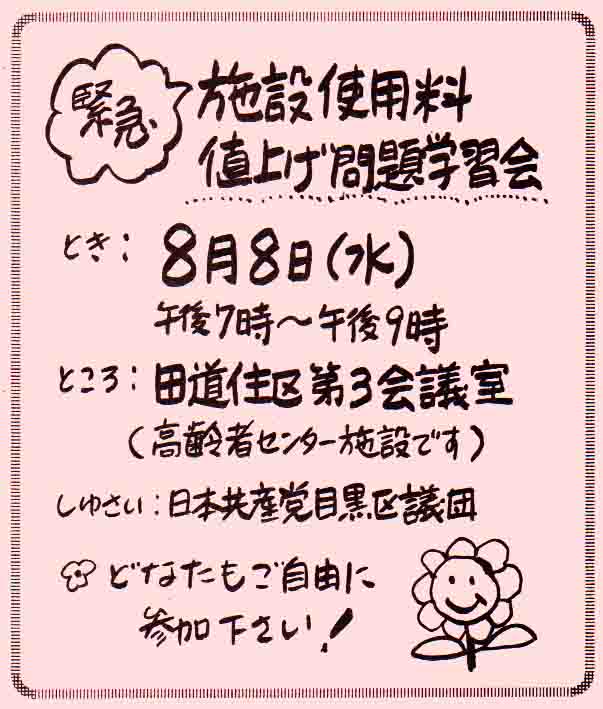 緊急
施設使用料
値上げ問題学習会
とき：8月8日（水）
午後7時～午後9時
ところ：田道住区第3会議室
（高齢者センター施設です）
しゅさい：日本共産党目黒区議団
どなたもご自由に
参加下さい！